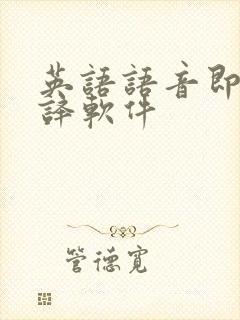 英語語音即
譯軟件
管德寬